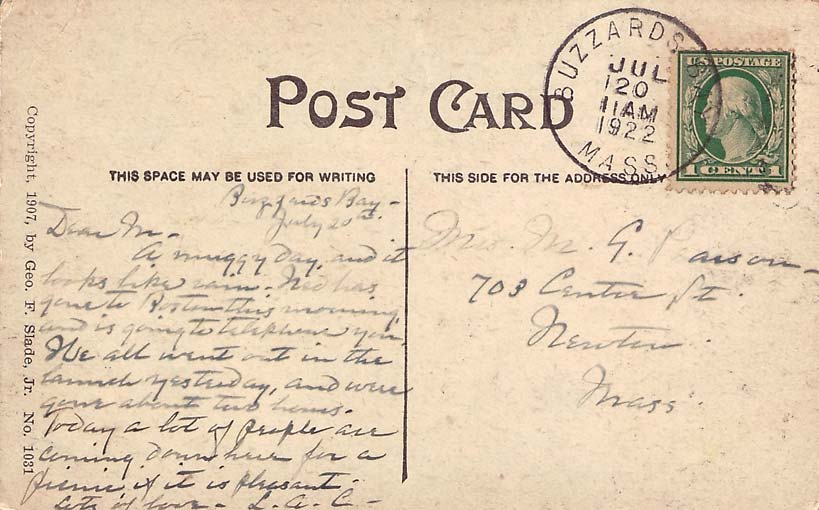 Copyright, 1907, by Geo. F. Slade, Jr. No. 1031
POST CARD
BUZZARDS
JUL
20
11 AM
1922
MASS.
U.S. POSTAGE
1 CENT 1
THIS SPACE MAY BE USED FOR WRITING
THIS SIDE FOR THE ADDRESS ONLY
Buzzards Bay -
July 20th.
Dear M -
A muggy day, and it
looks like rain - Ned has
gone to Boston this morning
and is going to telephone you.
We all went out in the
launch yesterday, and were
gone about two hours.
Today a lot of people are
coming down here for a
picnic if it is pleasant.
Lots of love - L. A. C -
Mrs. M. G. Pearson -
703 Centre St.
Newton
Mass.